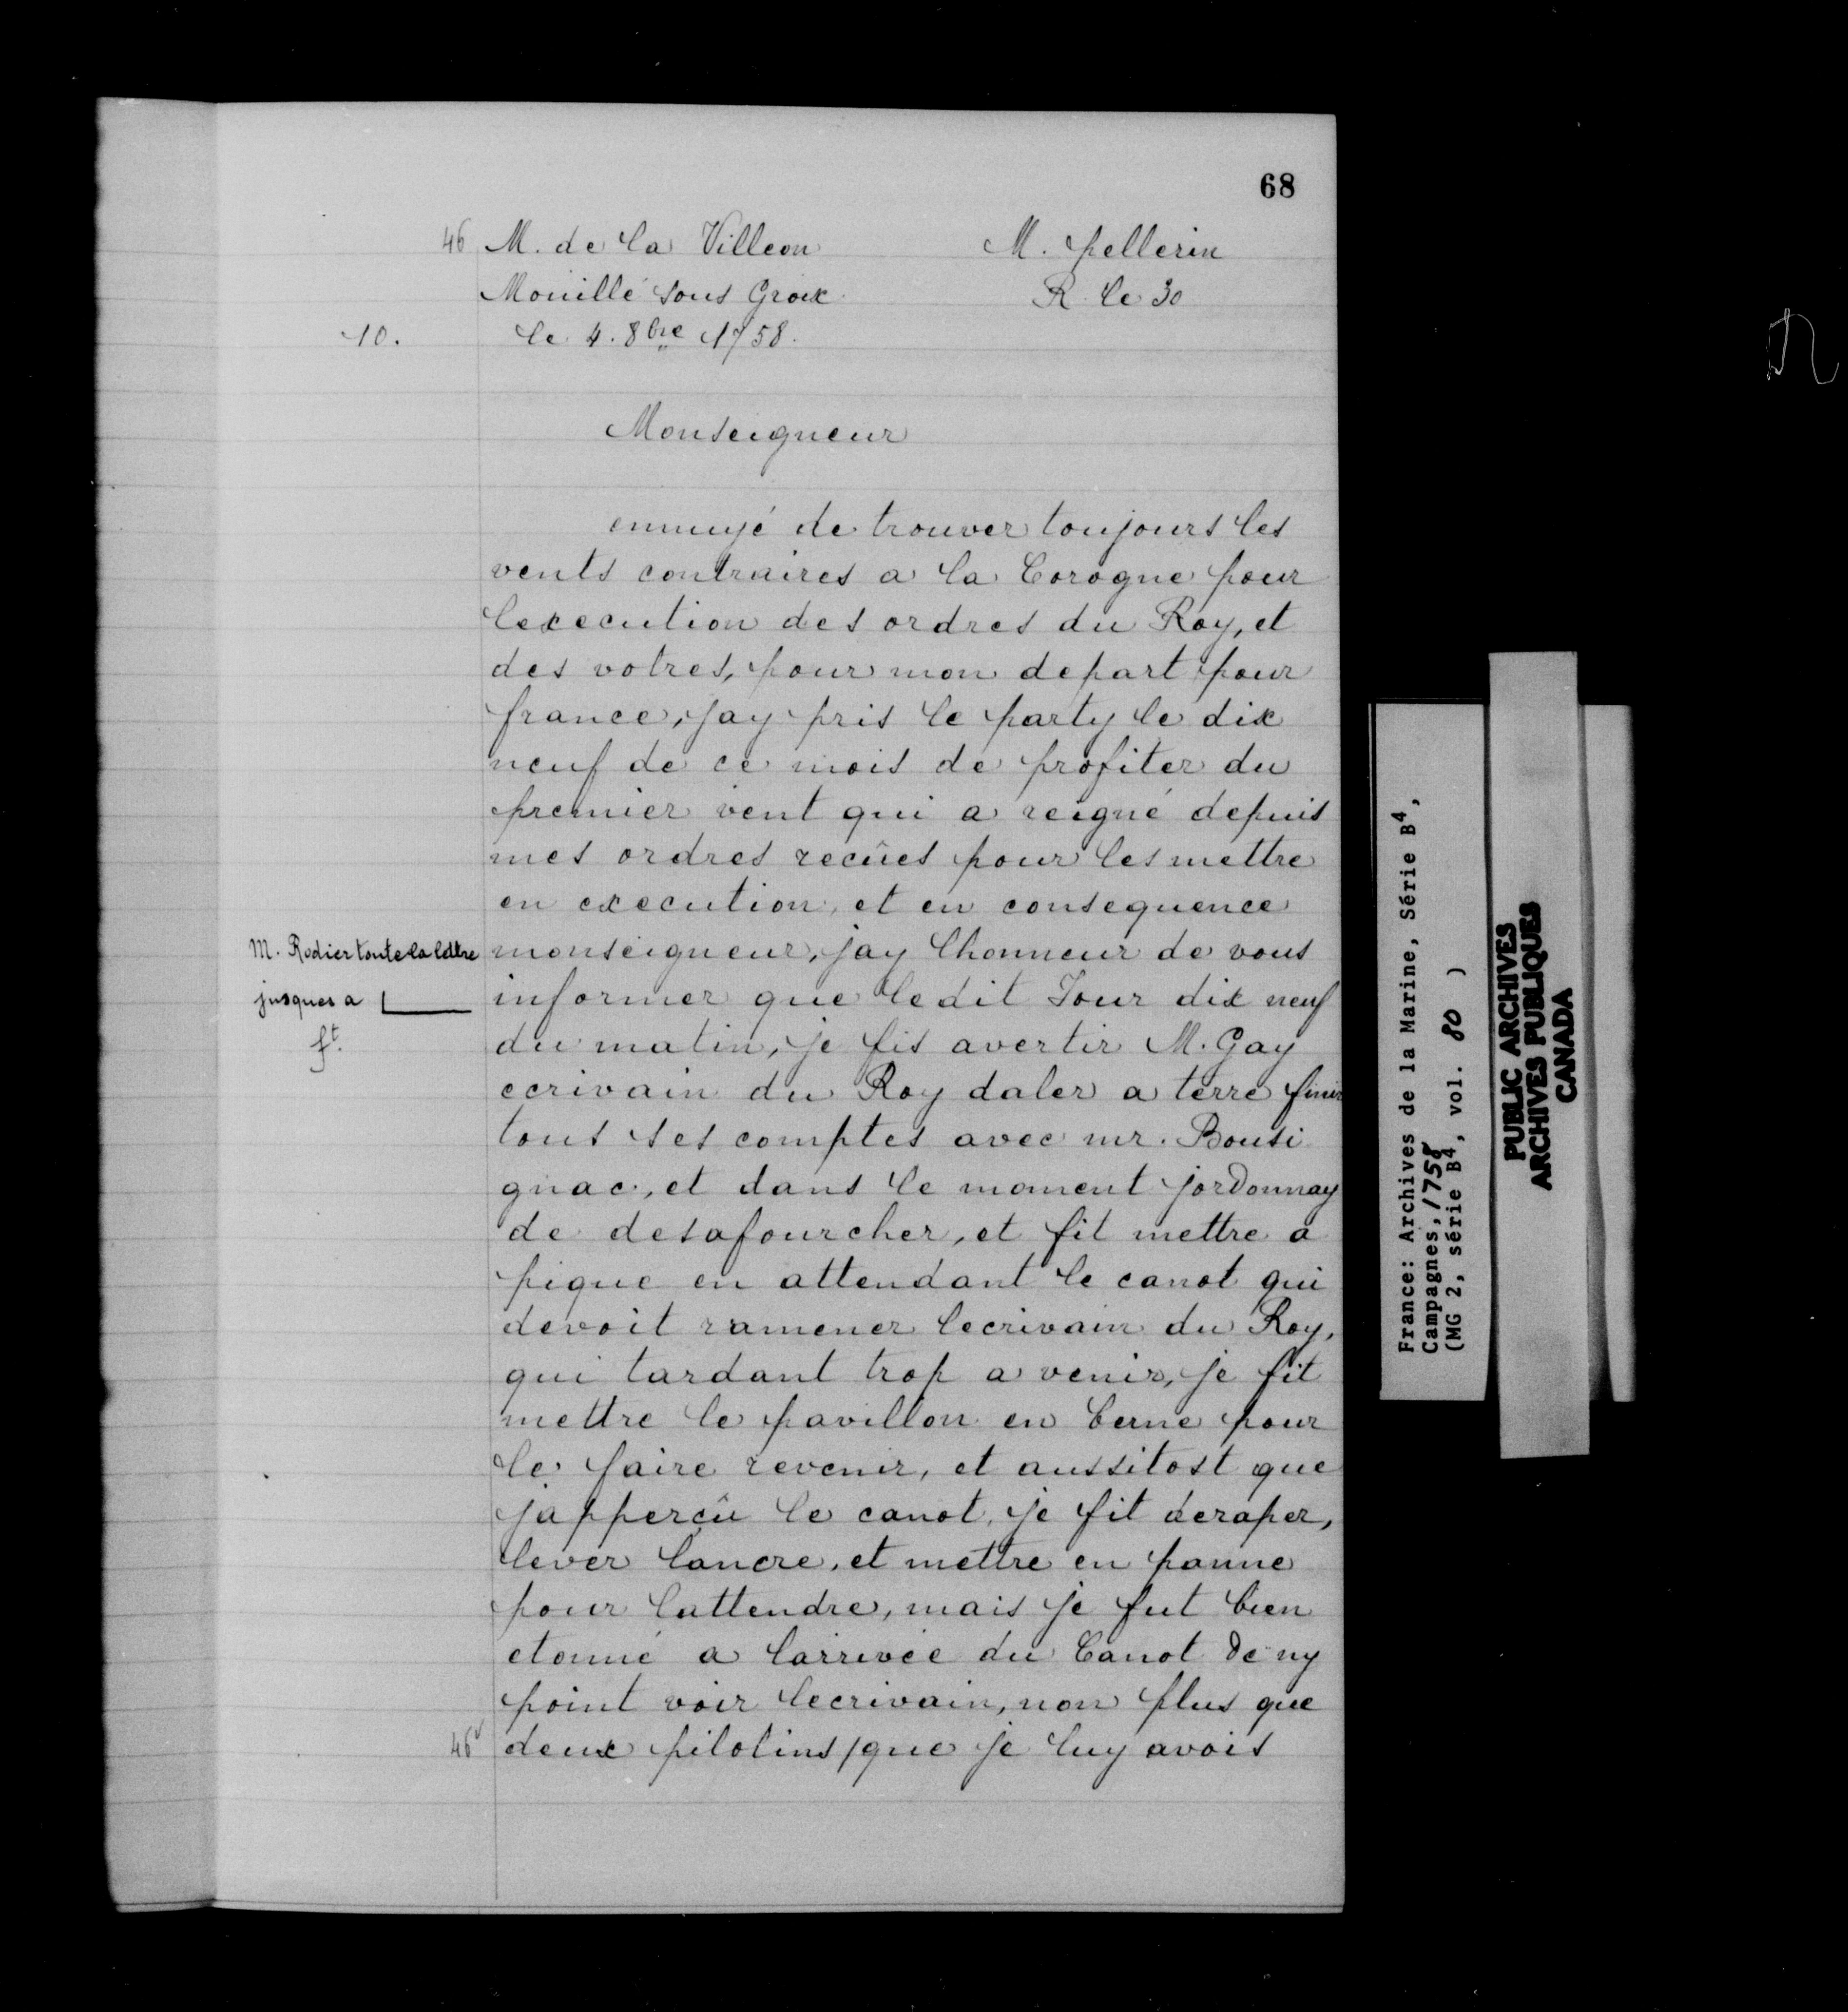 68
46 M. de la Villeon M. pellerin
Mouillé sous Groix R. le 30
10. le 4. 8bre 1758.
Monseigneur
ennuyé de trouver toujours les
vents contraires a la Corogne pour
lexecution des ordres du Roy, et
des votres, pour mon depart pour
france, jay pris le party le dix
neuf de ce mois de profiter du
premier vent qui a reigné depuis
mes ordres recûes pour les mettre
en execution, et en consequence
M. Rodier toute la lettre monseigneur, jay lhonneur de vous
jusques a informer que ledit Jour dix neuf
ft. du matin, je fis avertir M. Gay
ecrivain du Roy daler a terre finir
tous ses comptes avec mr. Bousi
gnac, et dans le moment jordonnay
de desafourcher, et fit mettre a
pique en attendant le canot qui
devoit ramener lecrivain du Roy,
qui tardant trop a venir, je fit
mettre le pavillon en berne pour
le faire revenir, et aussitost que
japperçû le canot, je fit deraper,
lever lancre, et mettre en panne
pour lattendre, mais je fut bien
etonné a larrivée du Canot de ny
point voir lecrivain, non plus que
46v deux pilotins / que je luy avois
France: Archives de la Marine, Série B4,
Campagnes, 1758
(MG 2, série B4, vol. 80 )
PUBLIC ARCHIVES
ARCHIVES PUBLIQUES
CANADA